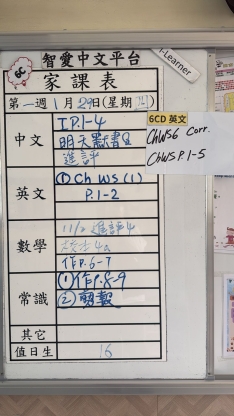 i-Learner
6C
智愛中文平台
家課表
第一週1月29日(星期四)
中文
工P.1-4
明天默書8
進評
英文
① Ch WS (1)
P.1-2
數學
11/2進評4
作P.6-7
常識
①作P.8-9
②剪報
其它
值日生
16
6CD 英文
ChWS6 Corr.
ChWS P.1-5